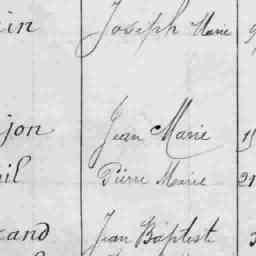 in Joseph Marie
jon Jean Marie 1
il Pierre Marie 21
and Jean Baptist 3